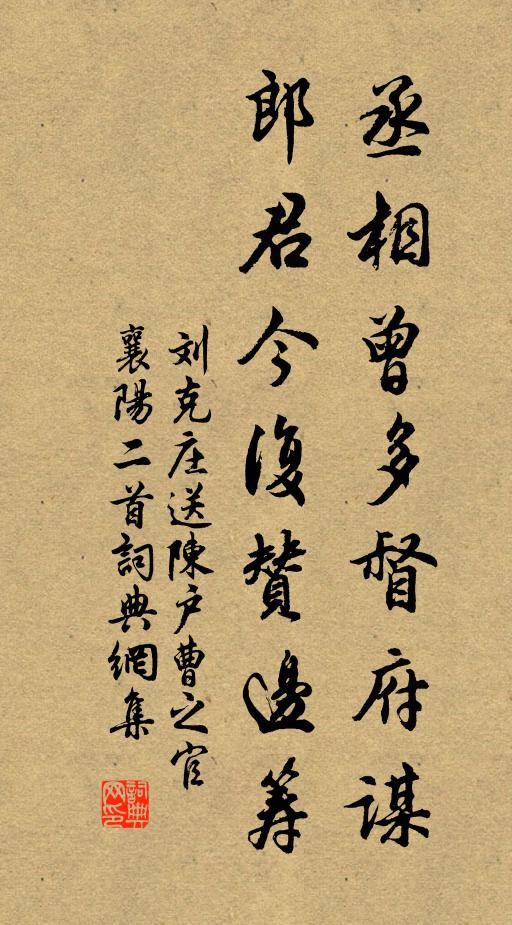 丞相曾多督府謀
郎君今復贊邊籌
刘克庄送陳户曹之官
襄陽二首詞典網集
詞典
网印